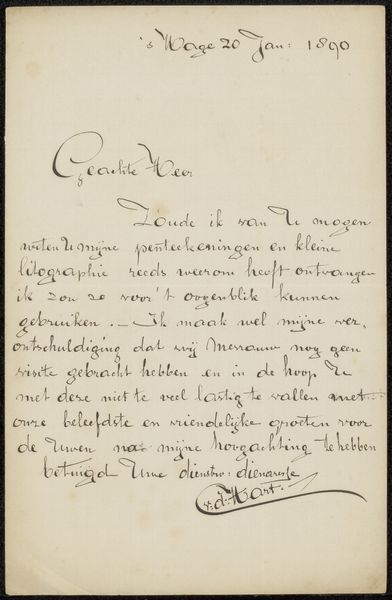 's Hage 20 Jan: 1890
Geachte Heer
Zoude ik van U mogen
weten U mijne penteekeningen en kleine
litographie reeds weerom heeft ontvangen
ik zou ze voor't oogenblik kunnen
gebruiken. – Ik maak wel mijne ver,
ontschuldiging dat wij Mevrouw nog geen
visite gebracht hebben en in de hoop U
met deze niet te veel lastig te vallen met
onze beleefdste en vriendelijke groeten voor
de Uwen na mijne hoogachting te hebben
betuigd Uwe dienstw: dienaresse
v: d: Hart.